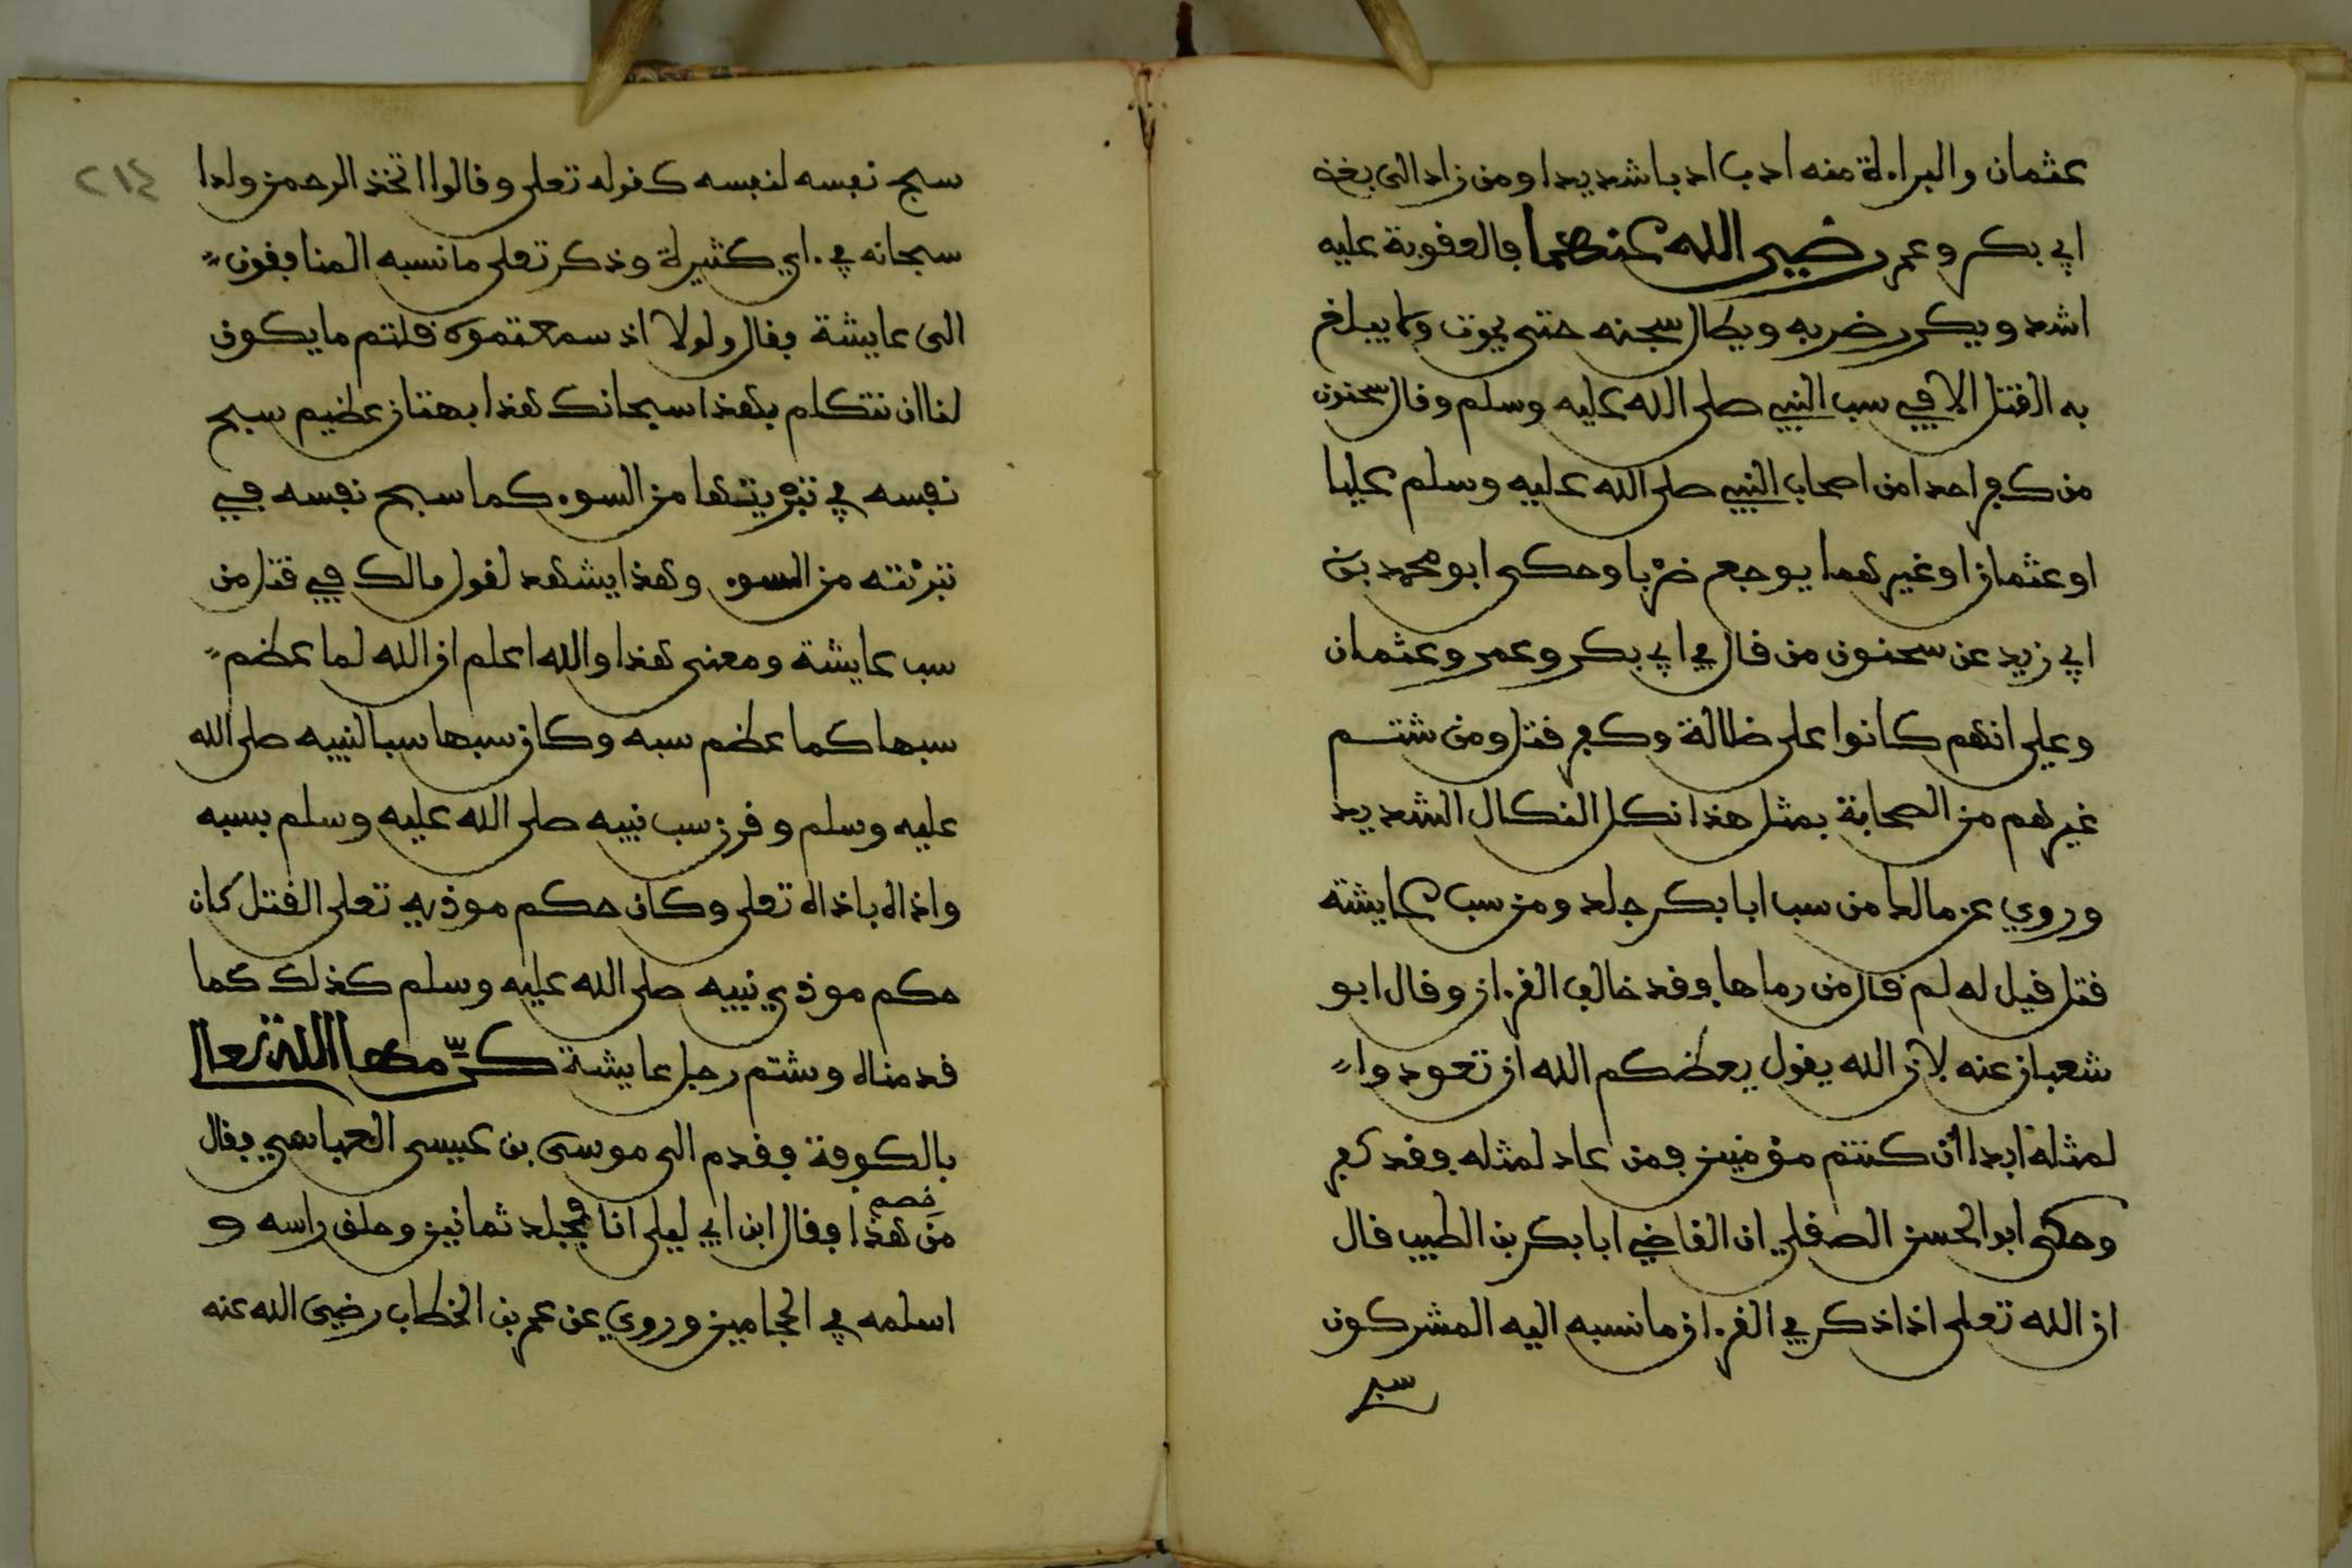 عثمان والبراءة منه ادب ادبا شديدا ومن زاد الى بغض
ابي بكر وعمر رضي الله عنهما فالعقوبة عليه
اشد ويكرر ضربه ويطال سجنه حتى يموت ولا يبلغ
به القتل الا في سب النبي صلى الله عليه وسلم وقال سحنون
من كفر احدا من اصحاب النبي صلى الله عليه وسلم عليا
او عثمان او غيرهما يوجع ضربا وحكى ابو محمد بن
ابي زيد عن سحنون من قال في ابي بكر وعمر وعثمان
وعلي انهم كانوا على ظالة وكفر قتل ومن شتم
غيرهم من الصحابة بمثل هذا نكل النكال الشديد
وروي عن مالك من سب ابا بكر جلد ومن سب عايشة
قتل قيل له لم قال من رماها فقد خالف القرءان وقال ابو
شعبان عنه لان الله يقول يعظكم الله ان تعودوا
لمثله ابدا ان كنتم مؤمنين فمن عاد لمثله فقد كفر
وحكى ابو الحسن الصقلي ان القاضي ابا بكر بن الطيب قال
ان الله تعلى اذا ذكر في القرءان ما نسبه اليه المشركون
سبح
٢١٤
سبح نفسه لنفسه كقوله تعلى وقالوا اتخذ الرحمن ولدا
سبحانه في ءاي كثيرة وذكر تعلى ما نسبه المنافقون
الى عايشة فقال ولولا اذ سمعتموه قلتم ما يكون
لنا ان نتكلم بهذا سبحانك هذا بهتان عظيم سبح
نفسه في تبريتها من السوء كما سبح نفسه في
تبرئته من السوء وهذا يشهد لقول مالك في قتل من
سب عايشة ومعنى هذا والله اعلم ان الله لما عظم
سبها كما عظم سبه وكان سبها سبا لنبيه صلى الله
عليه وسلم وقرن سب نبيه صلى الله عليه وسلم بسبه
واذاه باذاه تعلى وكان حكم موذيه تعلى القتل كان
حكم موذي نبيه صلى الله عليه وسلم كذلك كما
قدمناه وشتم رجل عايشة كرّمها الله تعالى
بالكوفة فقدم الى موسى بن عيسى العباسي فقال
من خصم هذا فقال ابن ابي ليلى انا فجلد ثمانين وحلق راسه و
اسلمه في الحجامين وروي عن عمر بن الخطاب رضي الله عنه